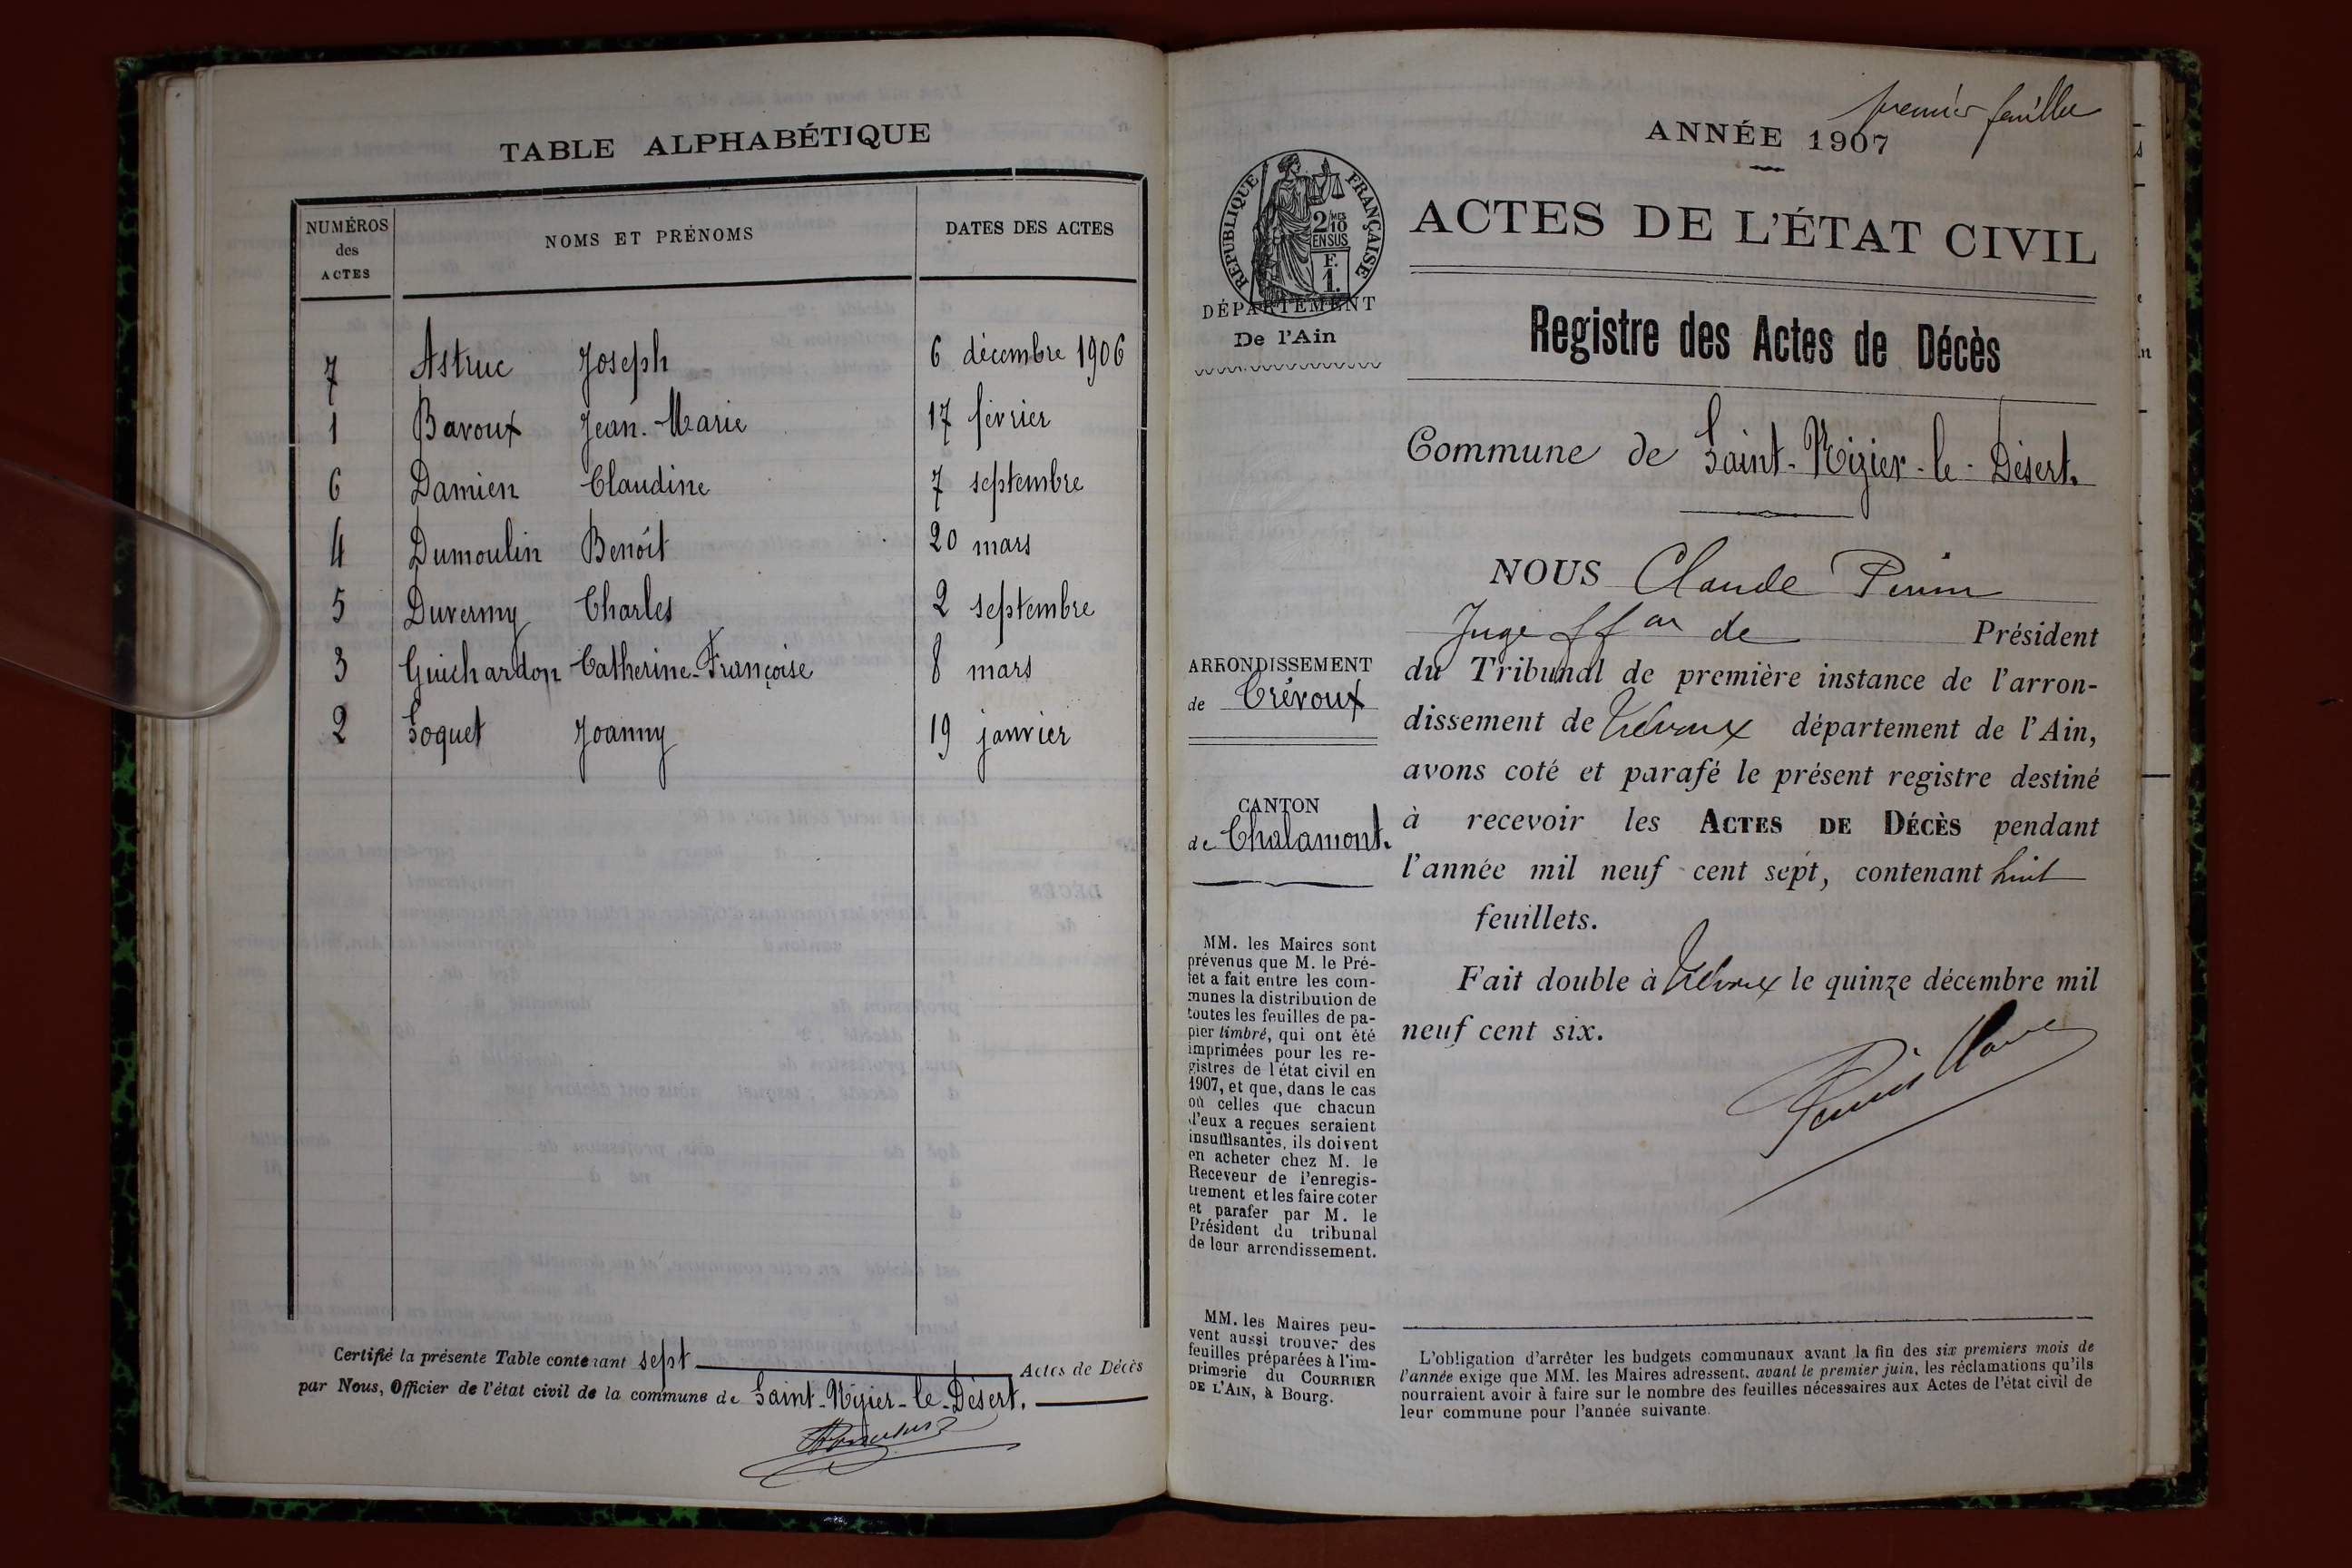 TABLE ALPHABÉTIQUE
NUMÉROS des ACTES
NOMS ET PRÉNOMS
DATES DES ACTES
7 Astruc Joseph 6 décembre 1906
1 Bavoux Jean-Marie 17 février
6 Damien Claudine 7 septembre
4 Dumoulin Benoît 20 mars
5 Duvermy Charles 2 septembre
3 Guichardon Catherine-Françoise 8 mars
2 Soquet Joanny 19 janvier
Certifié la présente Table contenant sept Actes de Décès
par Nous, Officier de l'état civil de la commune de Saint-Nizier-le-Désert.
premier feuillet
ANNÉE 1907
RÉPUBLIQUE FRANÇAISE
2/10 MES
EN SUS
F.
1.
DÉPARTEMENT
De l'Ain
ACTES DE L'ÉTAT CIVIL
Registre des Actes de Décès
Commune de Saint-Nizier-le-Désert.
NOUS Claude Perrin
Juge ff on de Président
du Tribunal de première instance de l'arron-
dissement de Trévoux département de l'Ain,
avons coté et parafé le présent registre destiné
à recevoir les ACTES DE DÉCÈS pendant
l'année mil neuf cent sept, contenant huit
feuillets.
Fait double à Trévoux le quinze décembre mil
neuf cent six.
ARRONDISSEMENT
de Trévoux
CANTON
de Chalamont.
MM. les Maires sont
prévenus que M. le Pré-
fet a fait entre les com-
munes la distribution de
toutes les feuilles de pa-
pier timbré, qui ont été
imprimées pour les re-
gistres de l'état civil en
1907, et que, dans le cas
où celles que chacun
d'eux a reçues seraient
insuffisantes, ils doivent
en acheter chez M. le
Receveur de l'enregis-
trement et les faire coter
et parafer par M. le
Président du tribunal
de leur arrondissement.
MM. les Maires peu-
vent aussi trouver des
feuilles préparées à l'im-
primerie du COURRIER
DE L'AIN, à Bourg.
L'obligation d'arrêter les budgets communaux avant la fin des six premiers mois de
l'année exige que MM. les Maires adressent, avant le premier juin, les réclamations qu'ils
pourraient avoir à faire sur le nombre des feuilles nécessaires aux Actes de l'état civil de
leur commune pour l'année suivante.